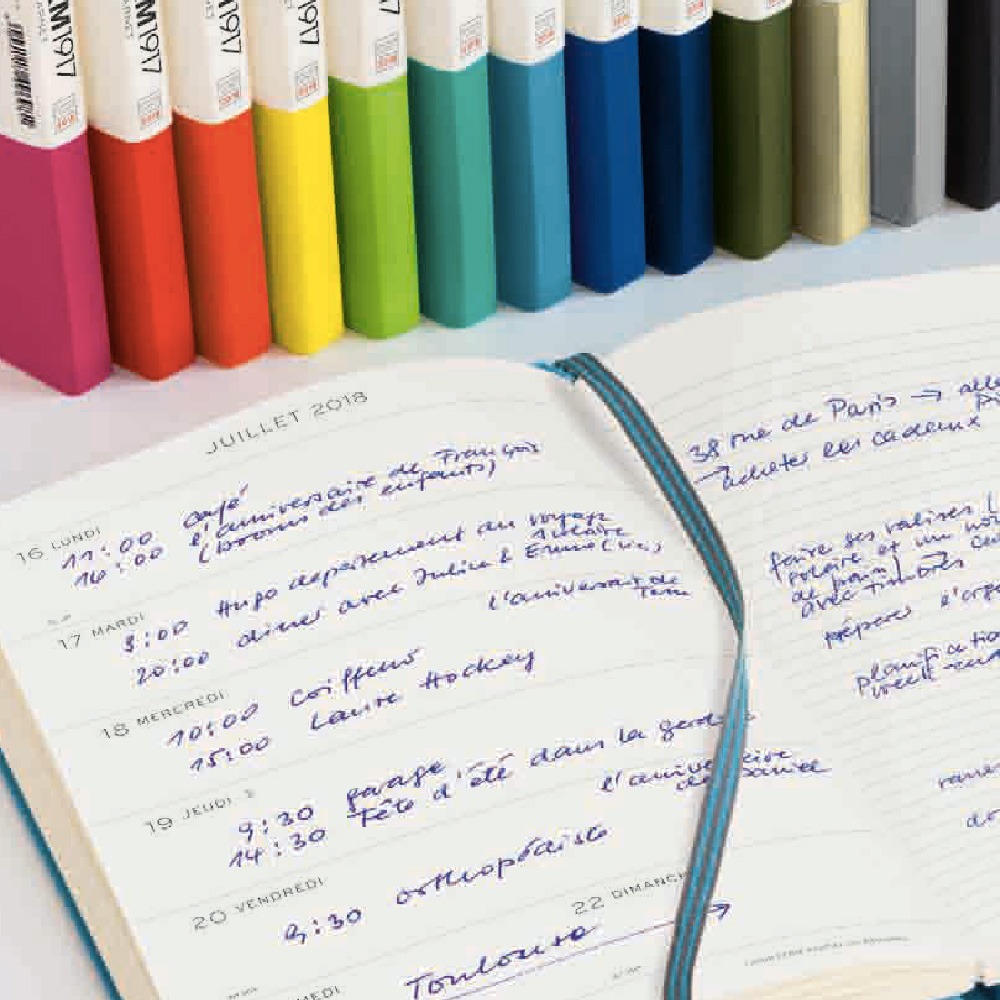 M1917
M1917
M1917
M1917
JUILLET 2018
16 LUNDI
11:00 café
16:00 l'anniversaire de François
(boums des enfants)
17 MARDI
8:00 Hugo departement du voyage
scolaire
20:00 diner avec Julien &
l'anniversaire de
Tom
18 MERCREDI
10:00 Coiffeur
15:00 Laure Hockey
19 JEUDI
9:30 garage
14:30 Fête d'été dans la
l'anniversaire
de Daniel
20 VENDREDI
9:30 orthopédiste
22 DIMANCHE
Toulouse
38 rue de Paris →
→ acheter les cadeaux
faire ses valises
de pain)
avec timbres
préparer
planification